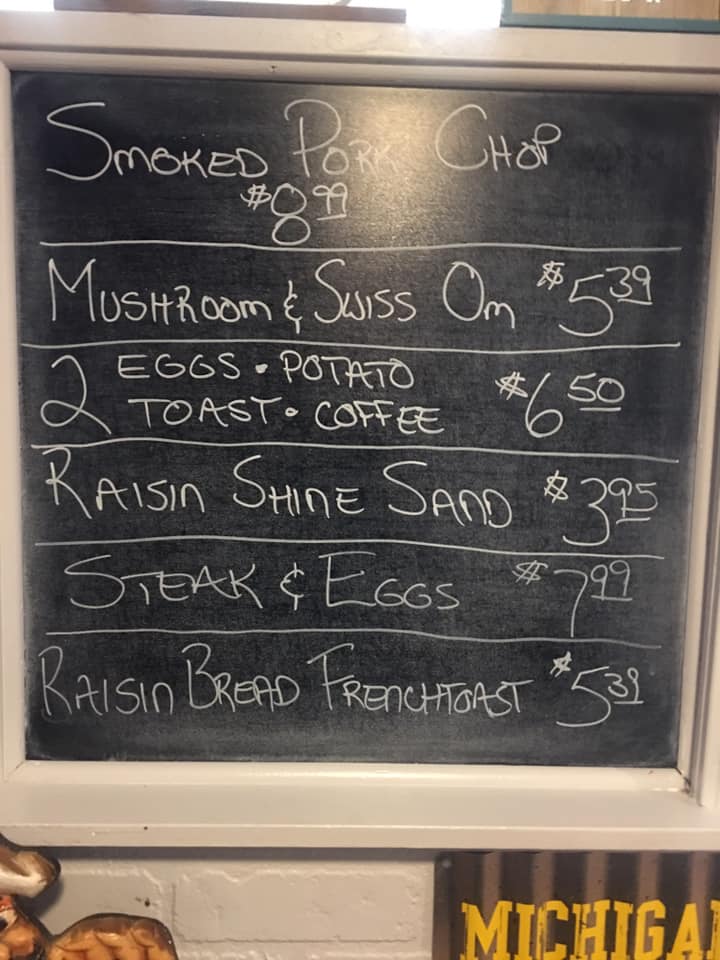 SMOKED PORK CHOP
$8.99
MUSHROOM & SWISS OM $5.39
2 EGGS • POTATO
TOAST • COFFEE $6.50
RAISIN SHINE SAND $3.95
STEAK & EGGS $7.99
RAISIN BREAD FRENCHTOAST $5.39
MICHIGA